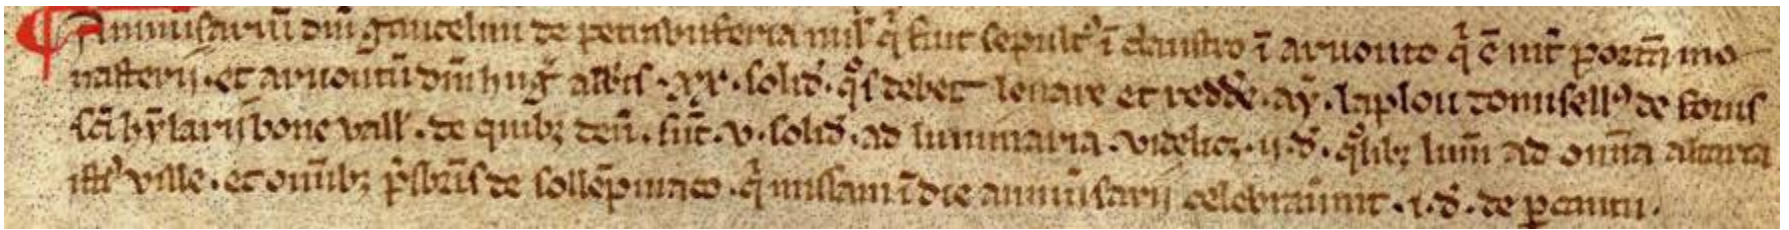 ¶ Anniu̅sariu̅ dn̅i gaucelini de petrabuferia mil̅ q̇ fuit sepult᷒ i̅ claustro i̅ aruouto q̇ e̅ int̅ porta̅ mo
nasterii · et aruoutu̅ dn̅i hug̅ · xx · solid̅ · qͦs debet leuare et redde̅ · ay̅ · laplou domisellꝰ de
sc̅i hylarii bone vall̅ · de quibꝫ den̅ · su̅t · v · solid̅ · ad luminaria · videlicꝫ · ii · d̅ · qͦlibꝫ lum̅ ad om̅ia altaria
isti᷒ ville · et om̅ibꝫ p̅sbr̅is de solle̅pniaco · q̇ missam i̅ die anniu̅sarii celebrau̅int · i · d̅ · de